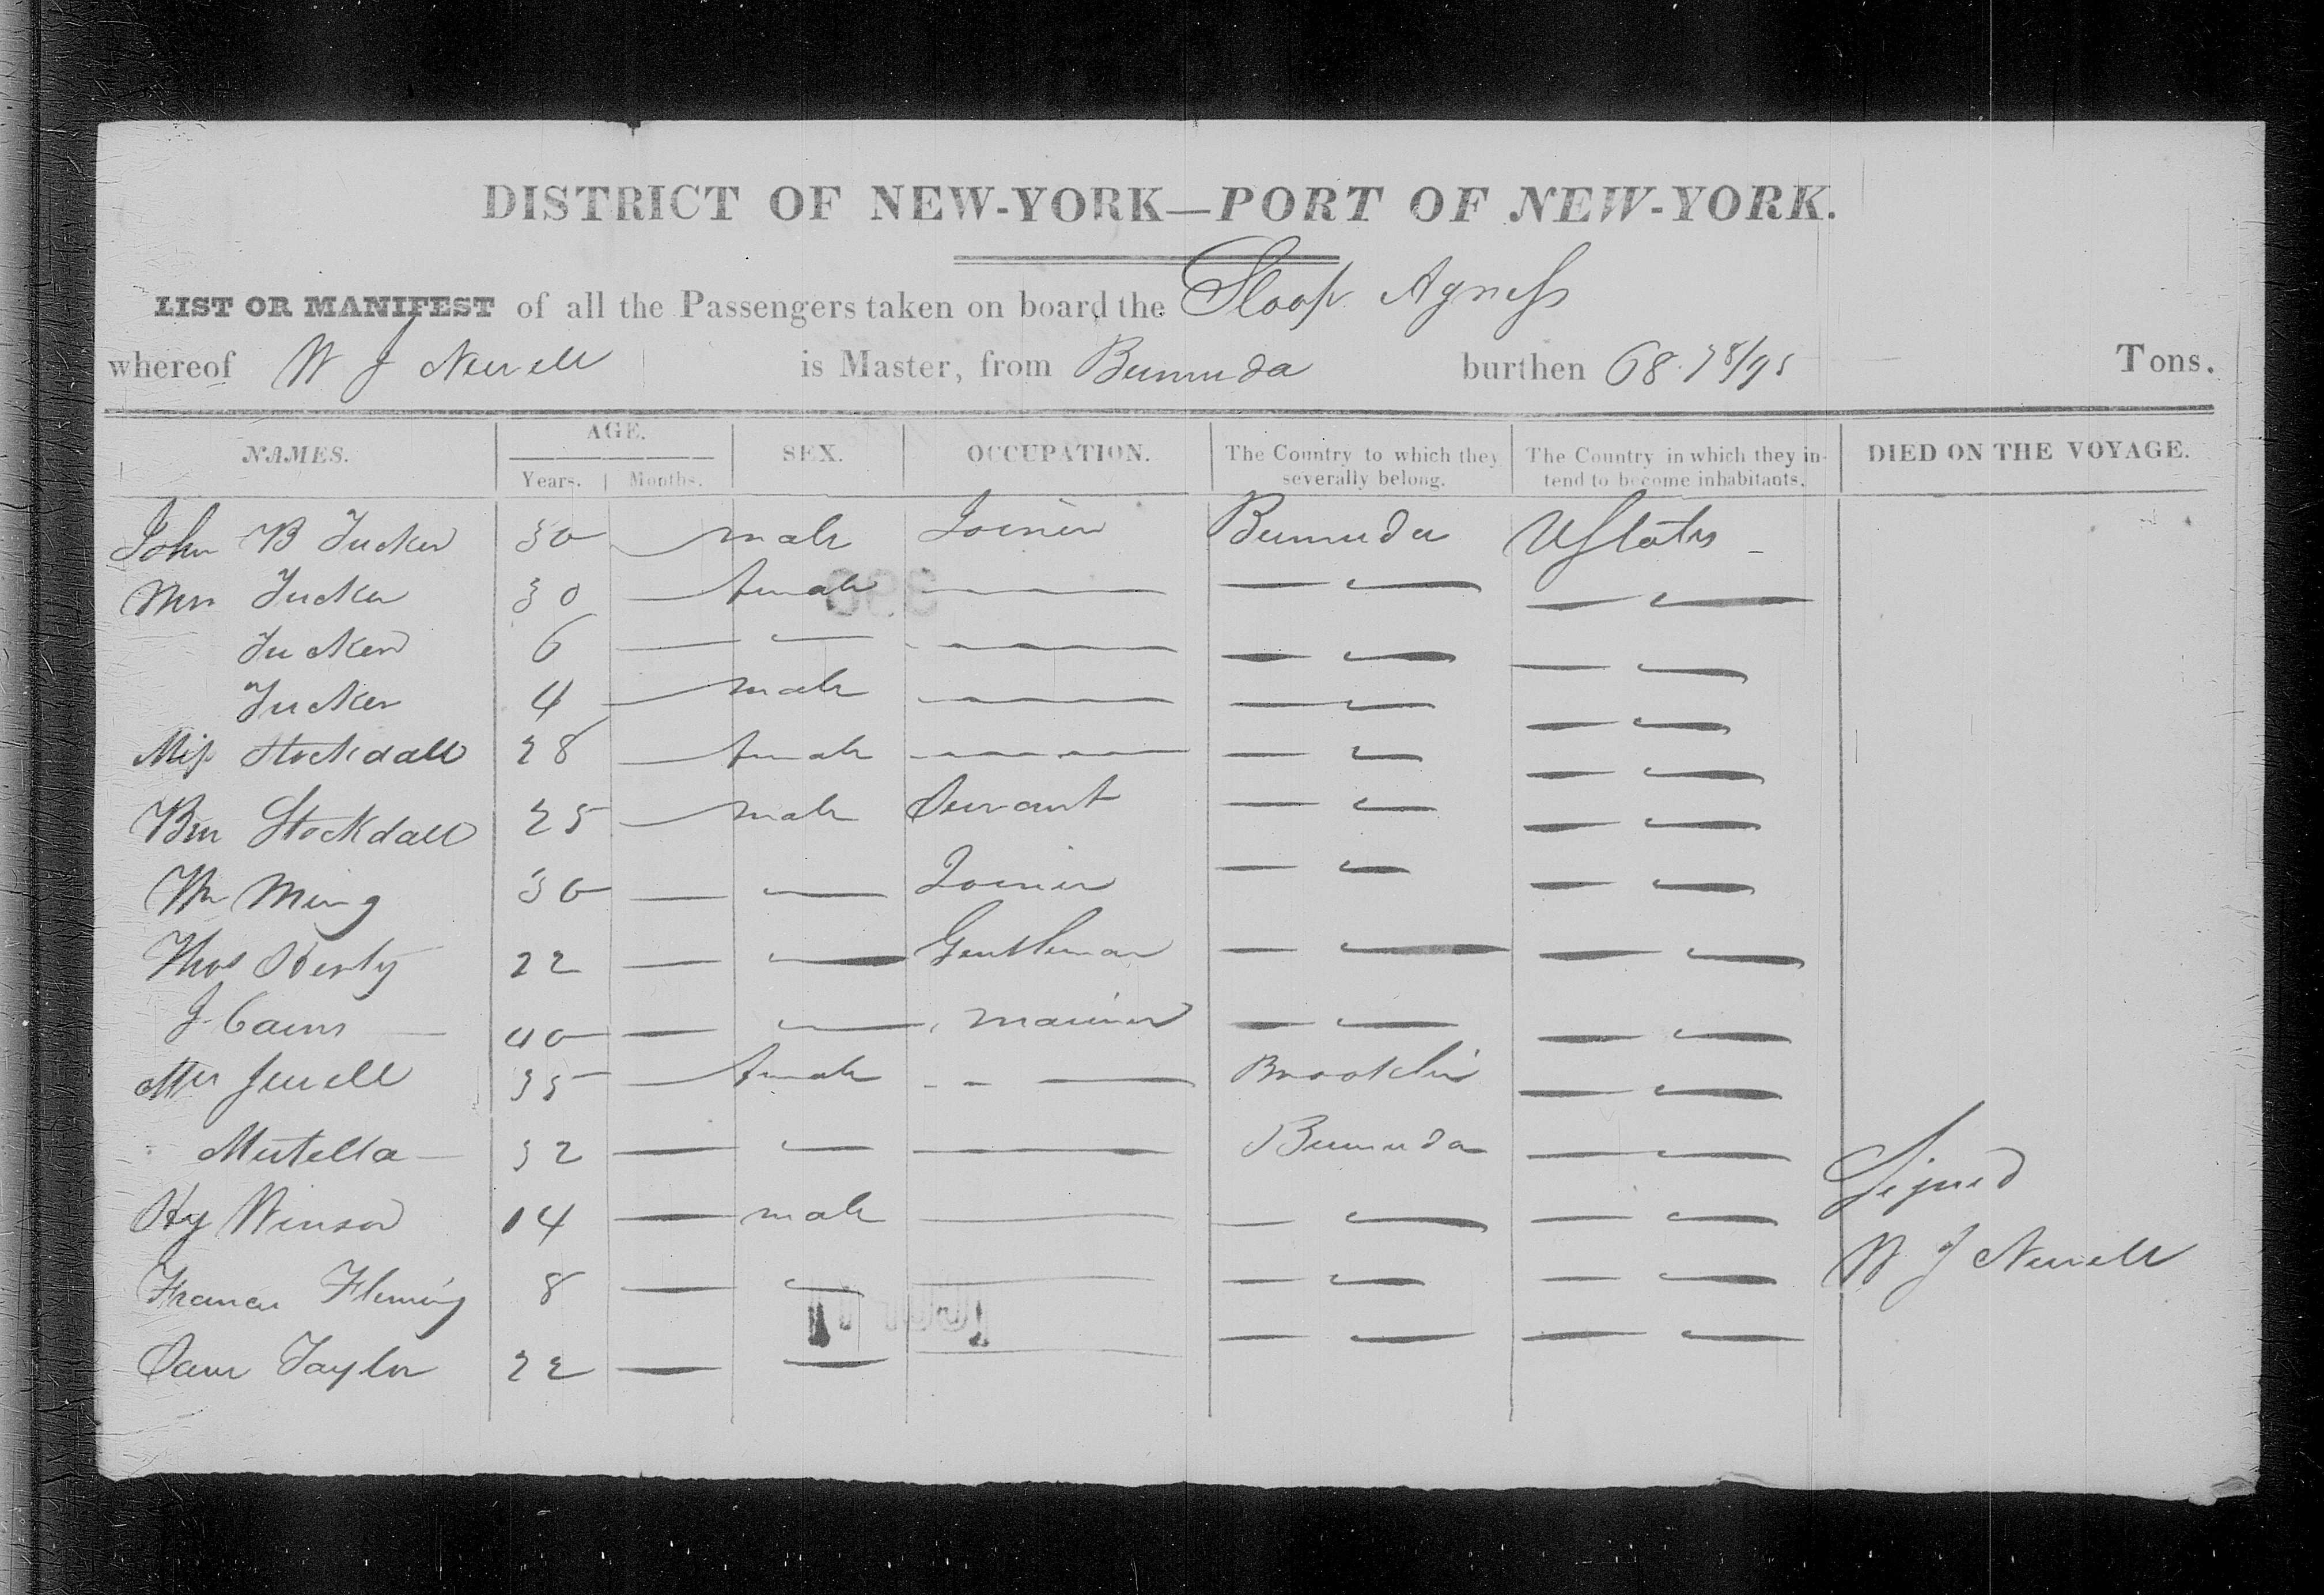 DISTRICT OF NEW-YORK—PORT OF NEW-YORK.
LIST OR MANIFEST of all the Passengers taken on board the Sloop Agness
whereof W J Newell is Master, from Bermuda burthen 68 Tons.
NAMES. AGE. SEX. OCCUPATION. The Country to which they severally belong. The Country in which they intend to become inhabitants. DIED ON THE VOYAGE.
Years. Months.
John B Tucker 30 — male Joiner Bermuda UStates -
Mrs Tucker 30 — female — — — — —
Tucker 6 — — — — — — —
Tucker 4 — male — — — — —
Miss Stockdall 28 — female — — — — —
Bn Stockdall 25 — male Servant — — — —
Wm Ming 30 — — Joiner — — — —
Thos 22 — — Gentleman — — — —
J Cams — 40 — — mariner — — — —
Mrs Jewell 35 — female - - — Brooklin — —
Mutella — 32 — — — Bermuda — —
Signed
Hy Winsor 14 — male — — — — —
W J Newell
Frances Fleming 8 — — — — — — —
Saml Taylor 22 — — — — — — —